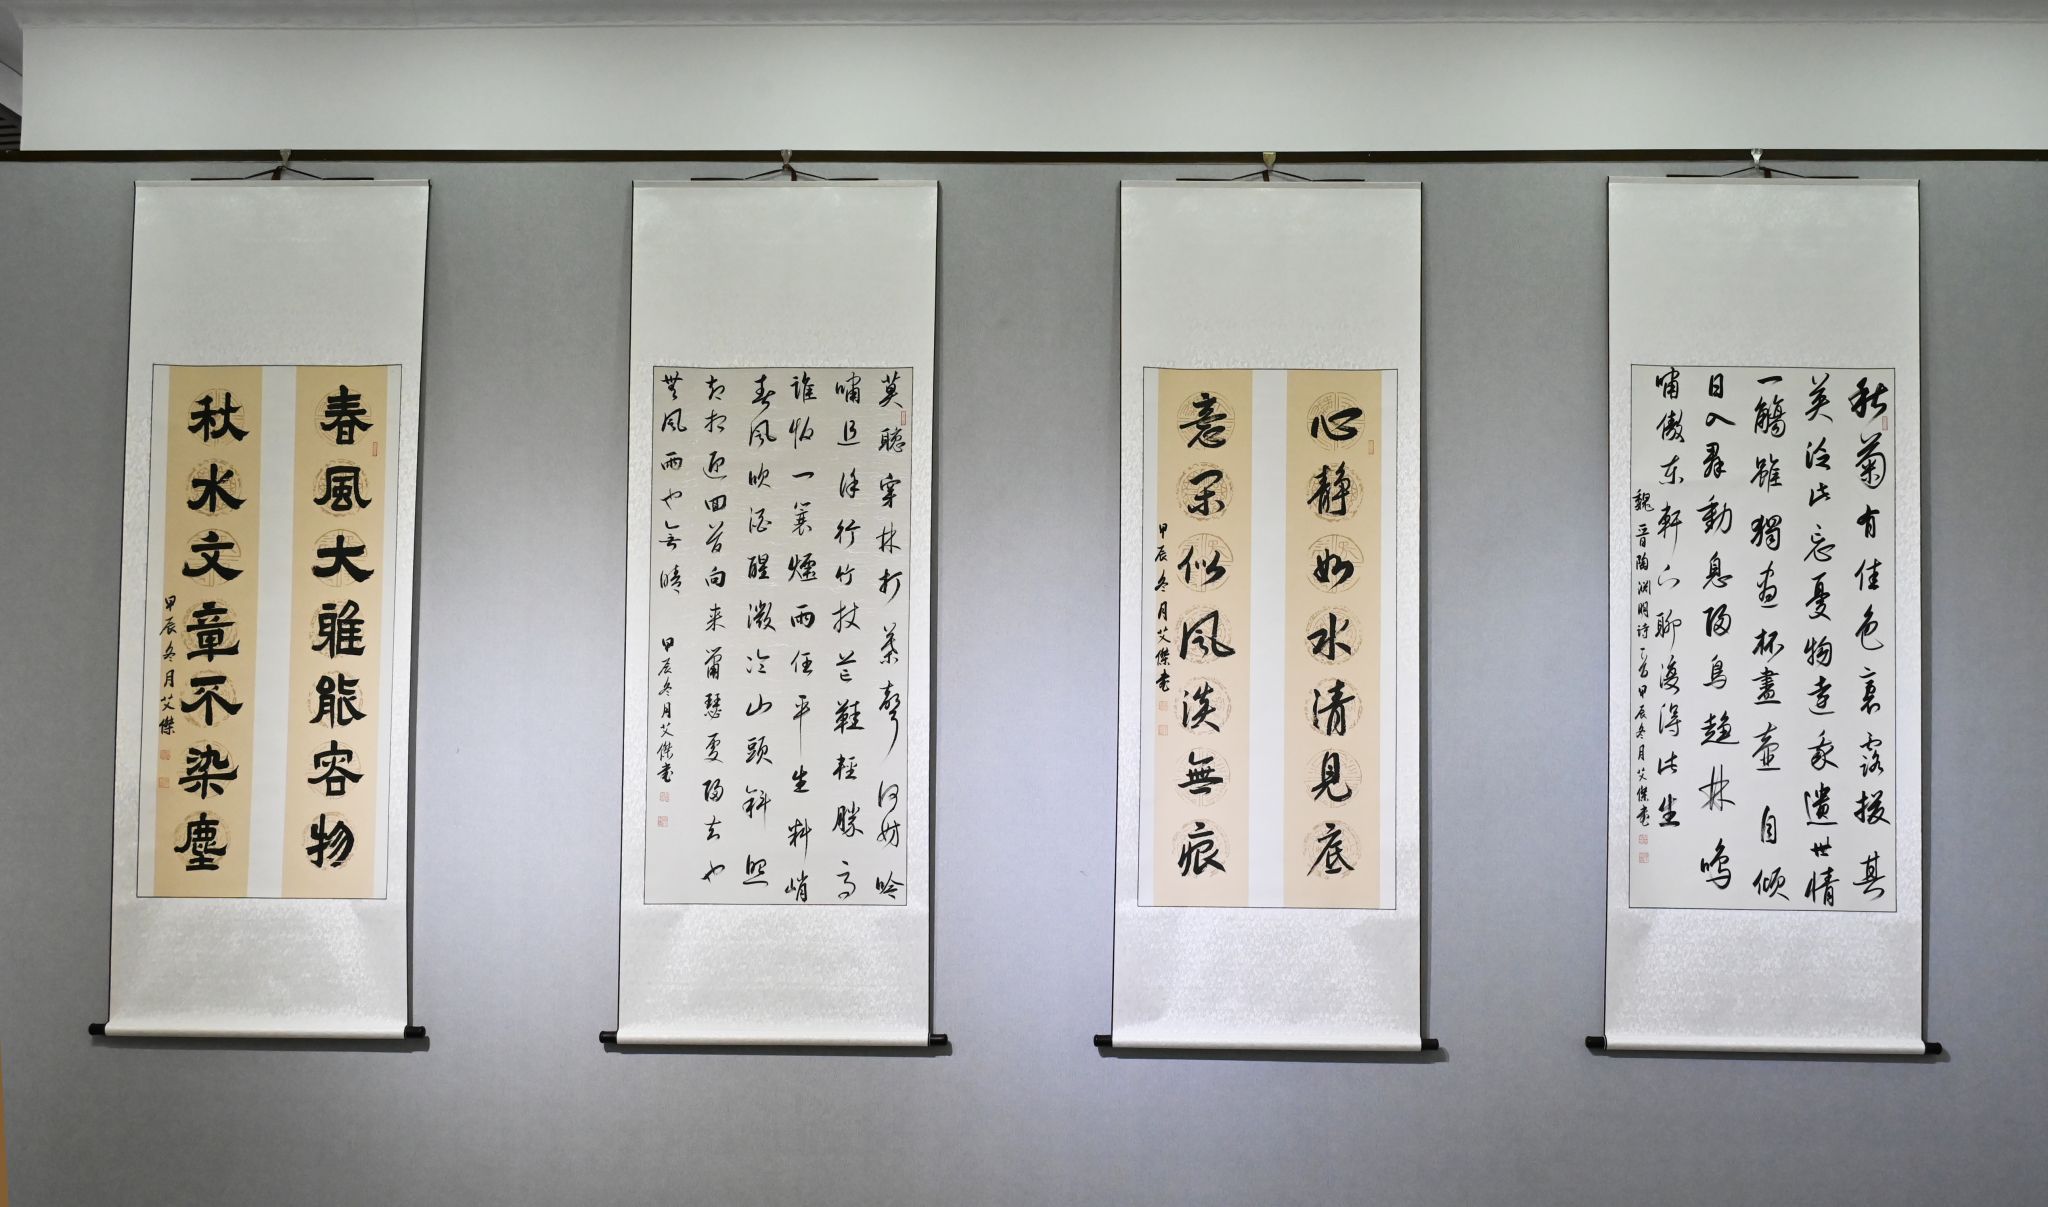 春風大雅能容物
秋水文章不染塵
甲辰冬月艾傑
莫聽穿林打葉聲何妨吟
嘯且徐行竹杖芒鞋輕勝馬
誰怕一蓑煙雨任平生料峭
春风吹酒醒微冷山頭斜照
却相迎回首向来蕭瑟處歸去也
無风雨也無晴
甲辰冬月艾傑書
心静如水清見底
意闲似风淡無痕
甲辰冬月艾傑書
秋菊有佳色裛露掇其
英泛此忘憂物遠我遺世情
一觴雖獨進杯盡壺自傾
日入群動息歸鳥趨林鳴
嘯傲东軒下聊復得此生
魏晋陶渊明诗一首甲辰冬月艾傑書